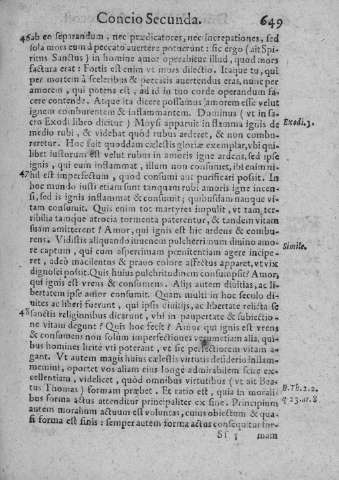 Concio Secunda. 649
46 ab en separandum, nec prædicatores, nec increpationes, sed
sola mors eum à peccato auertere potuerunt: sic ergo (ait Spi-
ritus Sanctus) in homine amor operabitur illud, quod mors
factura erat: Fortis est enim vt mors dilectio. Itaque tu, qui
per mortem à sceleribus & peccatis auertendus eras, nunc per
amorem, qui potens est, ad id in tuo corde operandum fa-
cere contende. Atque ita dicere possumus amorem esse velut
ignem comburentem & inflammantem. Dominus (vt in sa-
cro Exodi libro dicitur) Moysi apparuit in flamma ignis de
Exodi.3.
medio rubi, & videbat quòd rubus arderet, & non combu-
reretur. Hoc fuit quoddam cælestis gloriæ exemplar, vbi qui-
libet iustorum est velut rubus in amoris igne ardens, sed ipse
ignis, qui eum inflammat, illum non consumet, ibi enim ni-
47 hil est imperfectum, quod consumi aut purificari possit. In
hoc mundo iusti etiam sunt tanquam rubi amoris igne incen-
si, sed is ignis inflammat & consumit; quibusdam nanque vi-
tam consumit. Quis enim tot martyres impulit, vt tam, ter-
ribilia tamque atrocia tormenta paterentur, & tandem vitam
suam amitterent? Amor, qui ignis est hic ardens & combu-
rens. Vidistis aliquando iuuenem pulcherrimum diuino amo-
Simile.
re captum, qui cum asperrimam pœnitentiam agere incipe-
ret, adeò macilentus & præno colore affectus apparet, vt vix
dignolci possit. Quis huius pulchritudinem consumpsit? Amor,
qui ignis est vrens & consumens. Alijs autem diuitias, ac li-
bertatem ipse amor consumit. Quam multi in hoc seculo di-
uites ac liberi fuerunt, qui ipsis diuitijs, ac libertate relicta se
48 sanctis religionibus dicarunt, vbi in paupertate & subiectio-
ne vitam degunt? Quis hoc fecit? Amor qui ignis est vrens
& consumens non solùm imperfectiones verumetiam alia, qui-
bus homines licitè vti poterant, vt sic perfectiorem vitam a-
gant. Vt autem magis huius cælestis virtutis desiderio inflam-
memini, oportet vos aliam eius longè admirabilem scire exc-
cellentiam, videlicet, quòd omnibus virtutibus (vt ait Bea-
tus Thomas) formam præbet. Et ratio est, quia in morali-
D.Th.2.2.
bus forma actus attenditur principaliter ex fine. Principium
q 23.ar.8.
autem moralium actuum est voluntas, cuius obiectum & qua-
si forma est finis: semper autem forma actus consequitur for-
Sf 3 mam